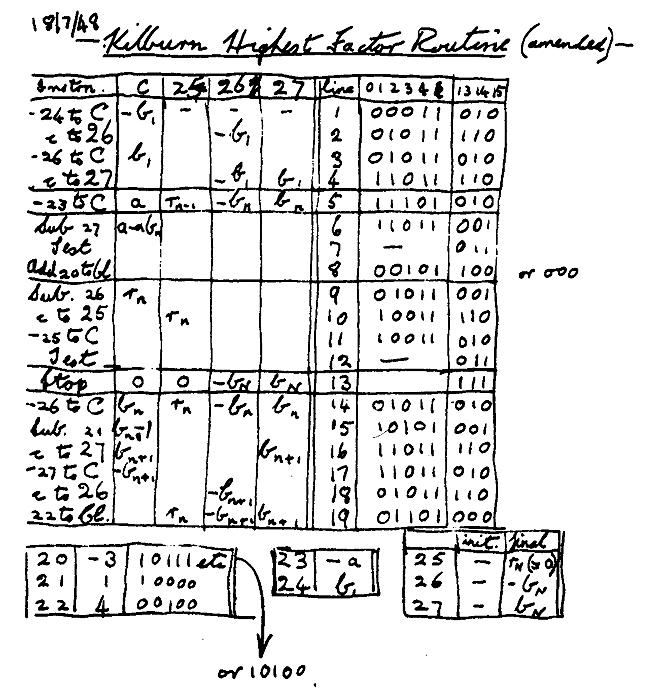 18/7/48
Kilburn Highest Factor Routine (amended) —
Instrn. C 25 26 27 line 0 1 2 3 4 5 13 14 15
-24 to C -b₁ - - - 1 00011 010
c to 26 -b₁ 2 01011 110
-26 to C b₁ 3 01011 010
c to 27 -b₁ b₁ 4 11011 110
-23 to C a rₙ₋₁ -bₙ bₙ 5 11101 010
Sub 27 a-abₙ 6 11011 001
Test 7 — 011
Add 20 to bl. 8 00101 100 or 000
Sub. 26 rₙ 9 01011 001
c to 25 rₙ 10 10011 110
-25 to C 11 10011 010
Test 12 — 011
Stop 0 0 -b_N b_N 13 111
-26 to C bₙ rₙ -bₙ bₙ 14 01011 010
Sub. 21 bₙ-1 15 10101 001
c to 27 bₙ₊₁ bₙ₊₁ 16 11011 110
-27 to C -bₙ₊₁ 17 11011 010
c to 26 -bₙ₊₁ 18 01011 110
22 to bl. rₙ -bₙ₊₁ bₙ₊₁ 19 01101 000
20 -3 10111 etc
21 1 10000
22 4 00100
or 10100
23 -a
24 b₁
init. final
25 - r_N (≥0)
26 - -b_N
27 - b_N